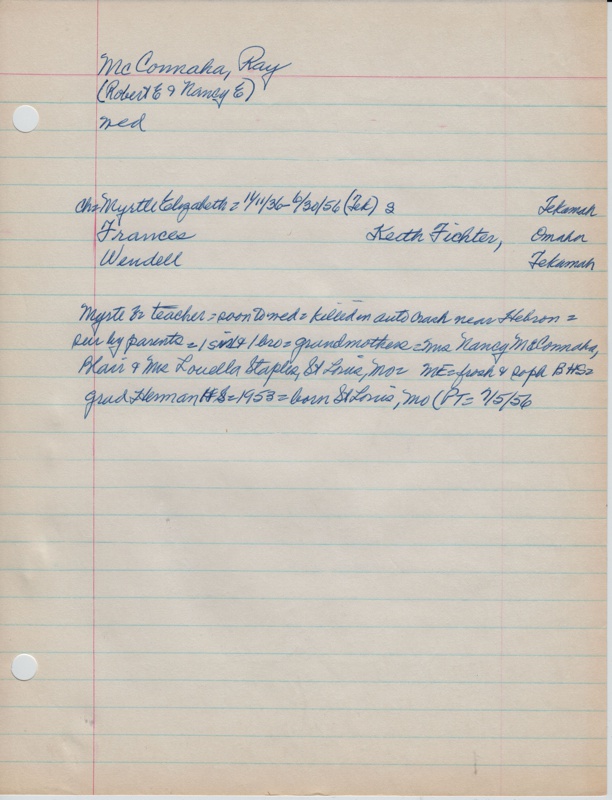 McConnaha, Ray
(Robert E & Nancy E)
wed
ch= Myrtle Elizabeth = 1/11/36-6/30/56 (Tek) s Tekamah
Frances Keith Fichter, Omaha
Wendell Tekamah
Myrte E= teacher = soon to wed = killed in auto crash near Hebron =
sur by parents = 1 sis & 1 bro = grandmothers = Mrs Nancy McConnaha,
Blair & Mrs Louella Staples, St Louis, Mo = ME= frosh & soph BHS=
grad Herman HS=1953 = born St Louis, Mo (PT= 7/5/56